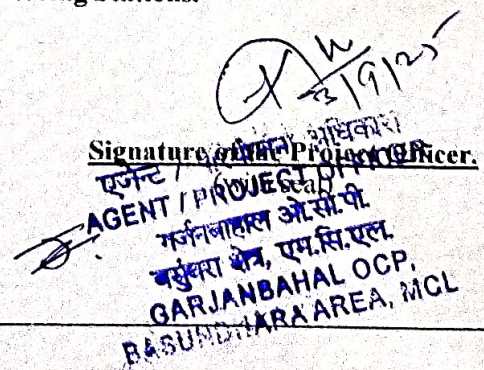 Stations.
3/9/25
Signature of the Project Officer.
एजेन्ट / परियोजना अधिकारी
AGENT / PROJECT OFFICER
गर्जनबाहाल ओ.सी.पी.
बसुंधरा क्षेत्र, एम.सि.एल.
GARJANBAHAL OCP,
BASUNDHARA AREA, MCL